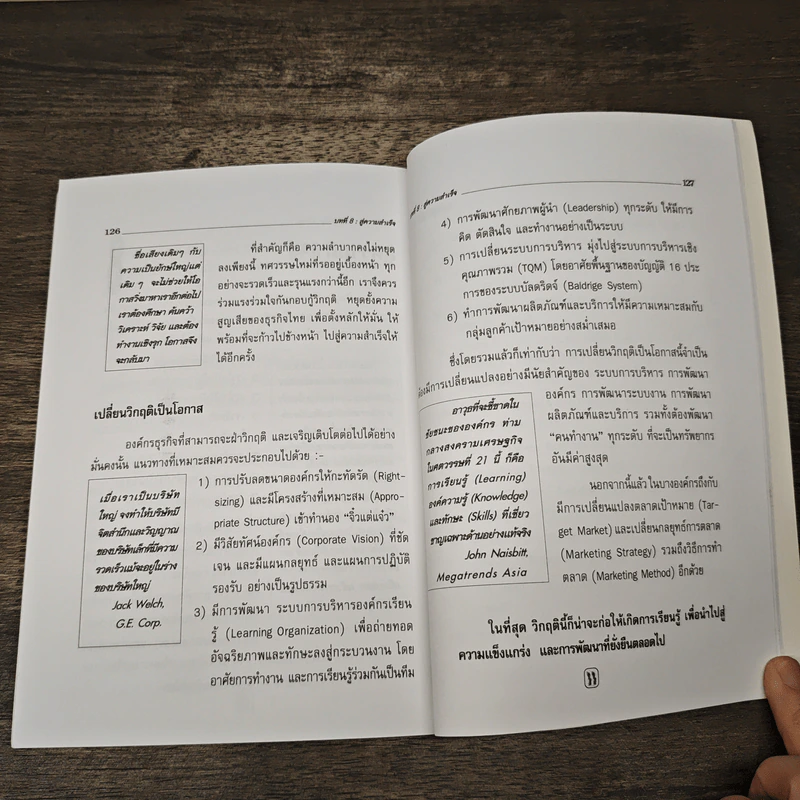 126
บทที่ 8 : สู่ความสำเร็จ
ชื่อเสียงเดิมๆ กับ
ความเป็นยักษ์ใหญ่แต่
เดิม ๆ จะไม่ช่วยให้โอ
กาสวิ่งมาหาเราอีกต่อไป
เราต้องศึกษา ค้นคว้า
วิเคราะห์ วิจัย และต้อง
ทำงานเชิงรุก โอกาสจึง
จะกลับมา
ที่สำคัญก็คือ ความลำบากคงไม่หยุด
ลงเพียงนี้ ทศวรรษใหม่ที่รออยู่เบื้องหน้า ทุก
อย่างจะรวดเร็วและรุนแรงกว่านี้อีก เราจึงควร
ร่วมแรงร่วมใจกันกอบกู้วิกฤติ หยุดยั้งความ
สูญเสียของธุรกิจไทย เพื่อตั้งหลักให้มั่น ให้
พร้อมที่จะก้าวไปข้างหน้า ไปสู่ความสำเร็จให้
ได้อีกครั้ง
เปลี่ยนวิกฤติเป็นโอกาส
องค์กรธุรกิจที่สามารถจะฝ่าวิกฤติ และเจริญเติบโตต่อไปได้อย่าง
มั่นคงนั้น แนวทางที่เหมาะสมควรจะประกอบไปด้วย :-
เมื่อเราเป็นบริษัท
ใหญ่ จงทำให้บริษัทมี
จิตสำนึกและวิญญาณ
ของบริษัทเล็กที่มีความ
รวดเร็วแม้จะอยู่ในร่าง
ของบริษัทใหญ่
Jack Welch,
G.E. Corp.
1) การปรับลดขนาดองค์กรให้กะทัดรัด (Right-
sizing) และมีโครงสร้างที่เหมาะสม (Appro-
priate Structure) เข้าทำนอง “จิ๋วแต่แจ๋ว”
2) มีวิสัยทัศน์องค์กร (Corporate Vision) ที่ชัด
เจน และมีแผนกลยุทธ์ และแผนการปฏิบัติ
รองรับ อย่างเป็นรูปธรรม
3) มีการพัฒนา ระบบการบริหารองค์กรเรียน
รู้ (Learning Organization) เพื่อถ่ายทอด
อัจฉริยภาพและทักษะลงสู่กระบวนงาน โดย
อาศัยการทำงาน และการเรียนรู้ร่วมกันเป็นทีม
ที่ 8 : สู่ความสำเร็จ
127
4) การพัฒนาศักยภาพผู้นำ (Leadership) ทุกระดับ ให้มีการ
คิด ตัดสินใจ และทำงานอย่างเป็นระบบ
5) การเปลี่ยนระบบการบริหาร มุ่งไปสู่ระบบการบริหารเชิง
คุณภาพรวม (TQM) โดยอาศัยพื้นฐานของบัญญัติ 16 ประ
การของระบบบัลดริดจ์ (Baldrige System)
6) ทำการพัฒนาผลิตภัณฑ์และบริการให้มีความเหมาะสมกับ
กลุ่มลูกค้าเป้าหมายอย่างสม่ำเสมอ
ซึ่งโดยรวมแล้วก็เท่ากับว่า การเปลี่ยนวิกฤติเป็นโอกาสนี้จำเป็น
ต้องมีการเปลี่ยนแปลงอย่างมีนัยสำคัญของ ระบบการบริหาร การพัฒนา
องค์กร การพัฒนาระบบงาน การพัฒนา
ผลิตภัณฑ์และบริการ รวมทั้งต้องพัฒนา
“คนทำงาน” ทุกระดับ ที่จะเป็นทรัพยากร
อันมีค่าสูงสุด
อาวุธที่จะชี้ขาดใน
ชัยชนะขององค์กร ท่าม
กลางสงครามเศรษฐกิจ
ในศตวรรษที่ 21 นี้ ก็คือ
การเรียนรู้ (Learning)
องค์ความรู้ (Knowledge)
และทักษะ (Skills) ที่เชี่ยว
ชาญเฉพาะด้านอย่างแท้จริง
John Naisbitt,
Megatrends Asia
นอกจากนี้แล้ว ในบางองค์กรถึงกับ
มีการเปลี่ยนแปลงตลาดเป้าหมาย (Tar-
get Market) และเปลี่ยนกลยุทธ์การตลาด
(Marketing Strategy) รวมถึงวิธีการทำ
ตลาด (Marketing Method) อีกด้วย
ในที่สุด วิกฤตินี้ก็น่าจะก่อให้เกิดการเรียนรู้ เพื่อนำไปสู่
ความแข็งแกร่ง และการพัฒนาที่ยั่งยืนตลอดไป